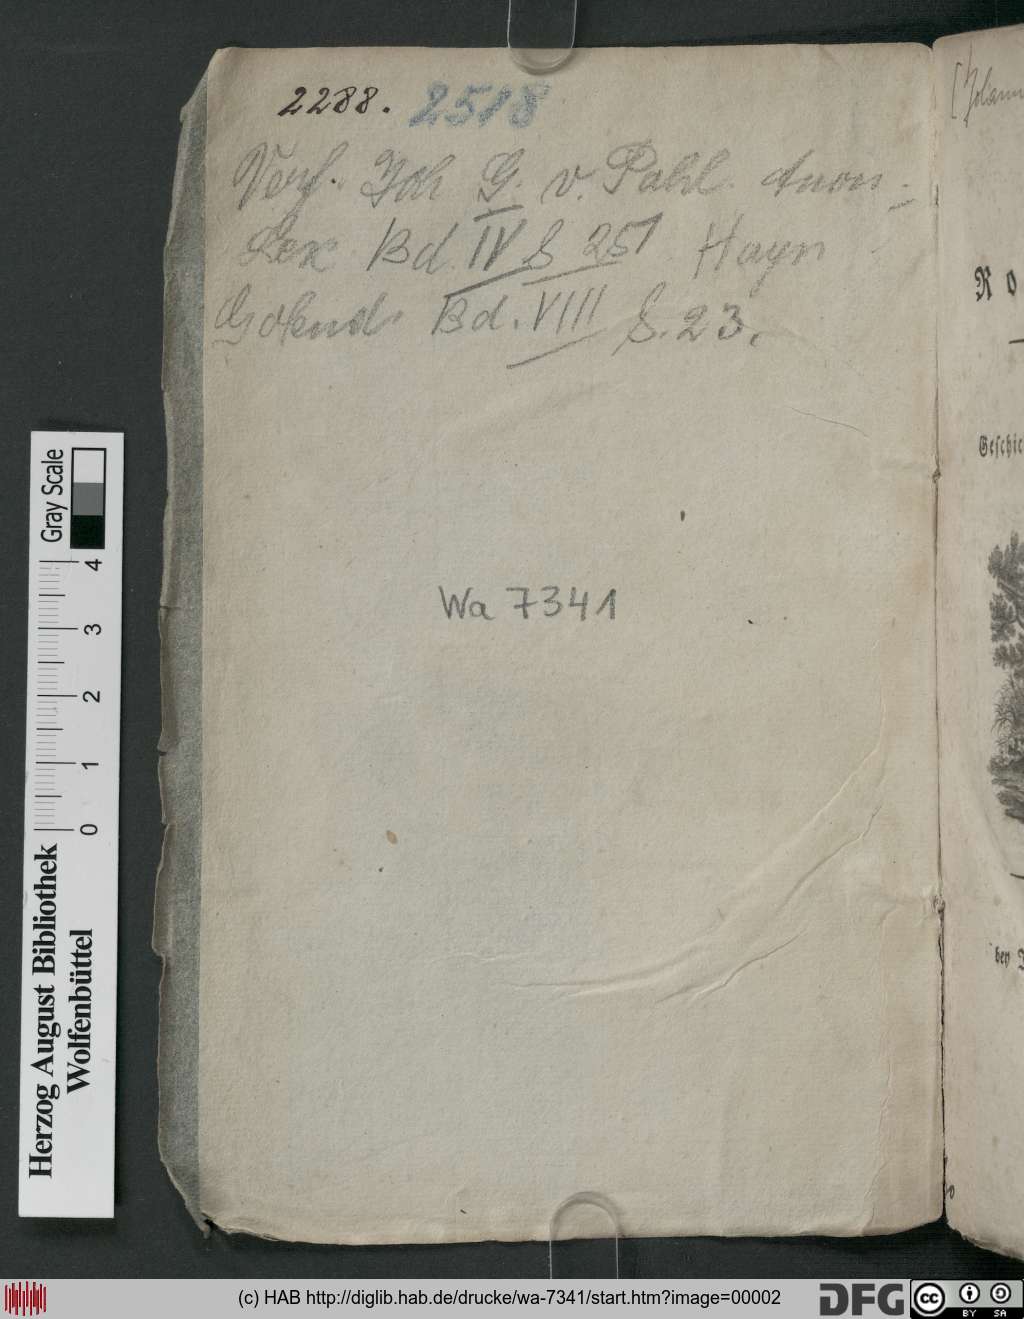 2288. 2518
Verf. Joh G. v. Pahl. Anon.
Lex Bd. IV S 251 Hayn
Gotend. Bd. VIII S. 23.
Wa 7341
[Johann
Ro
Geschic
bey
Gray Scale
4
3
2
1
0
Herzog August Bibliothek
Wolfenbüttel
(c) HAB http://diglib.hab.de/drucke/wa-7341/start.htm?image=00002
DFG
cc
BY SA